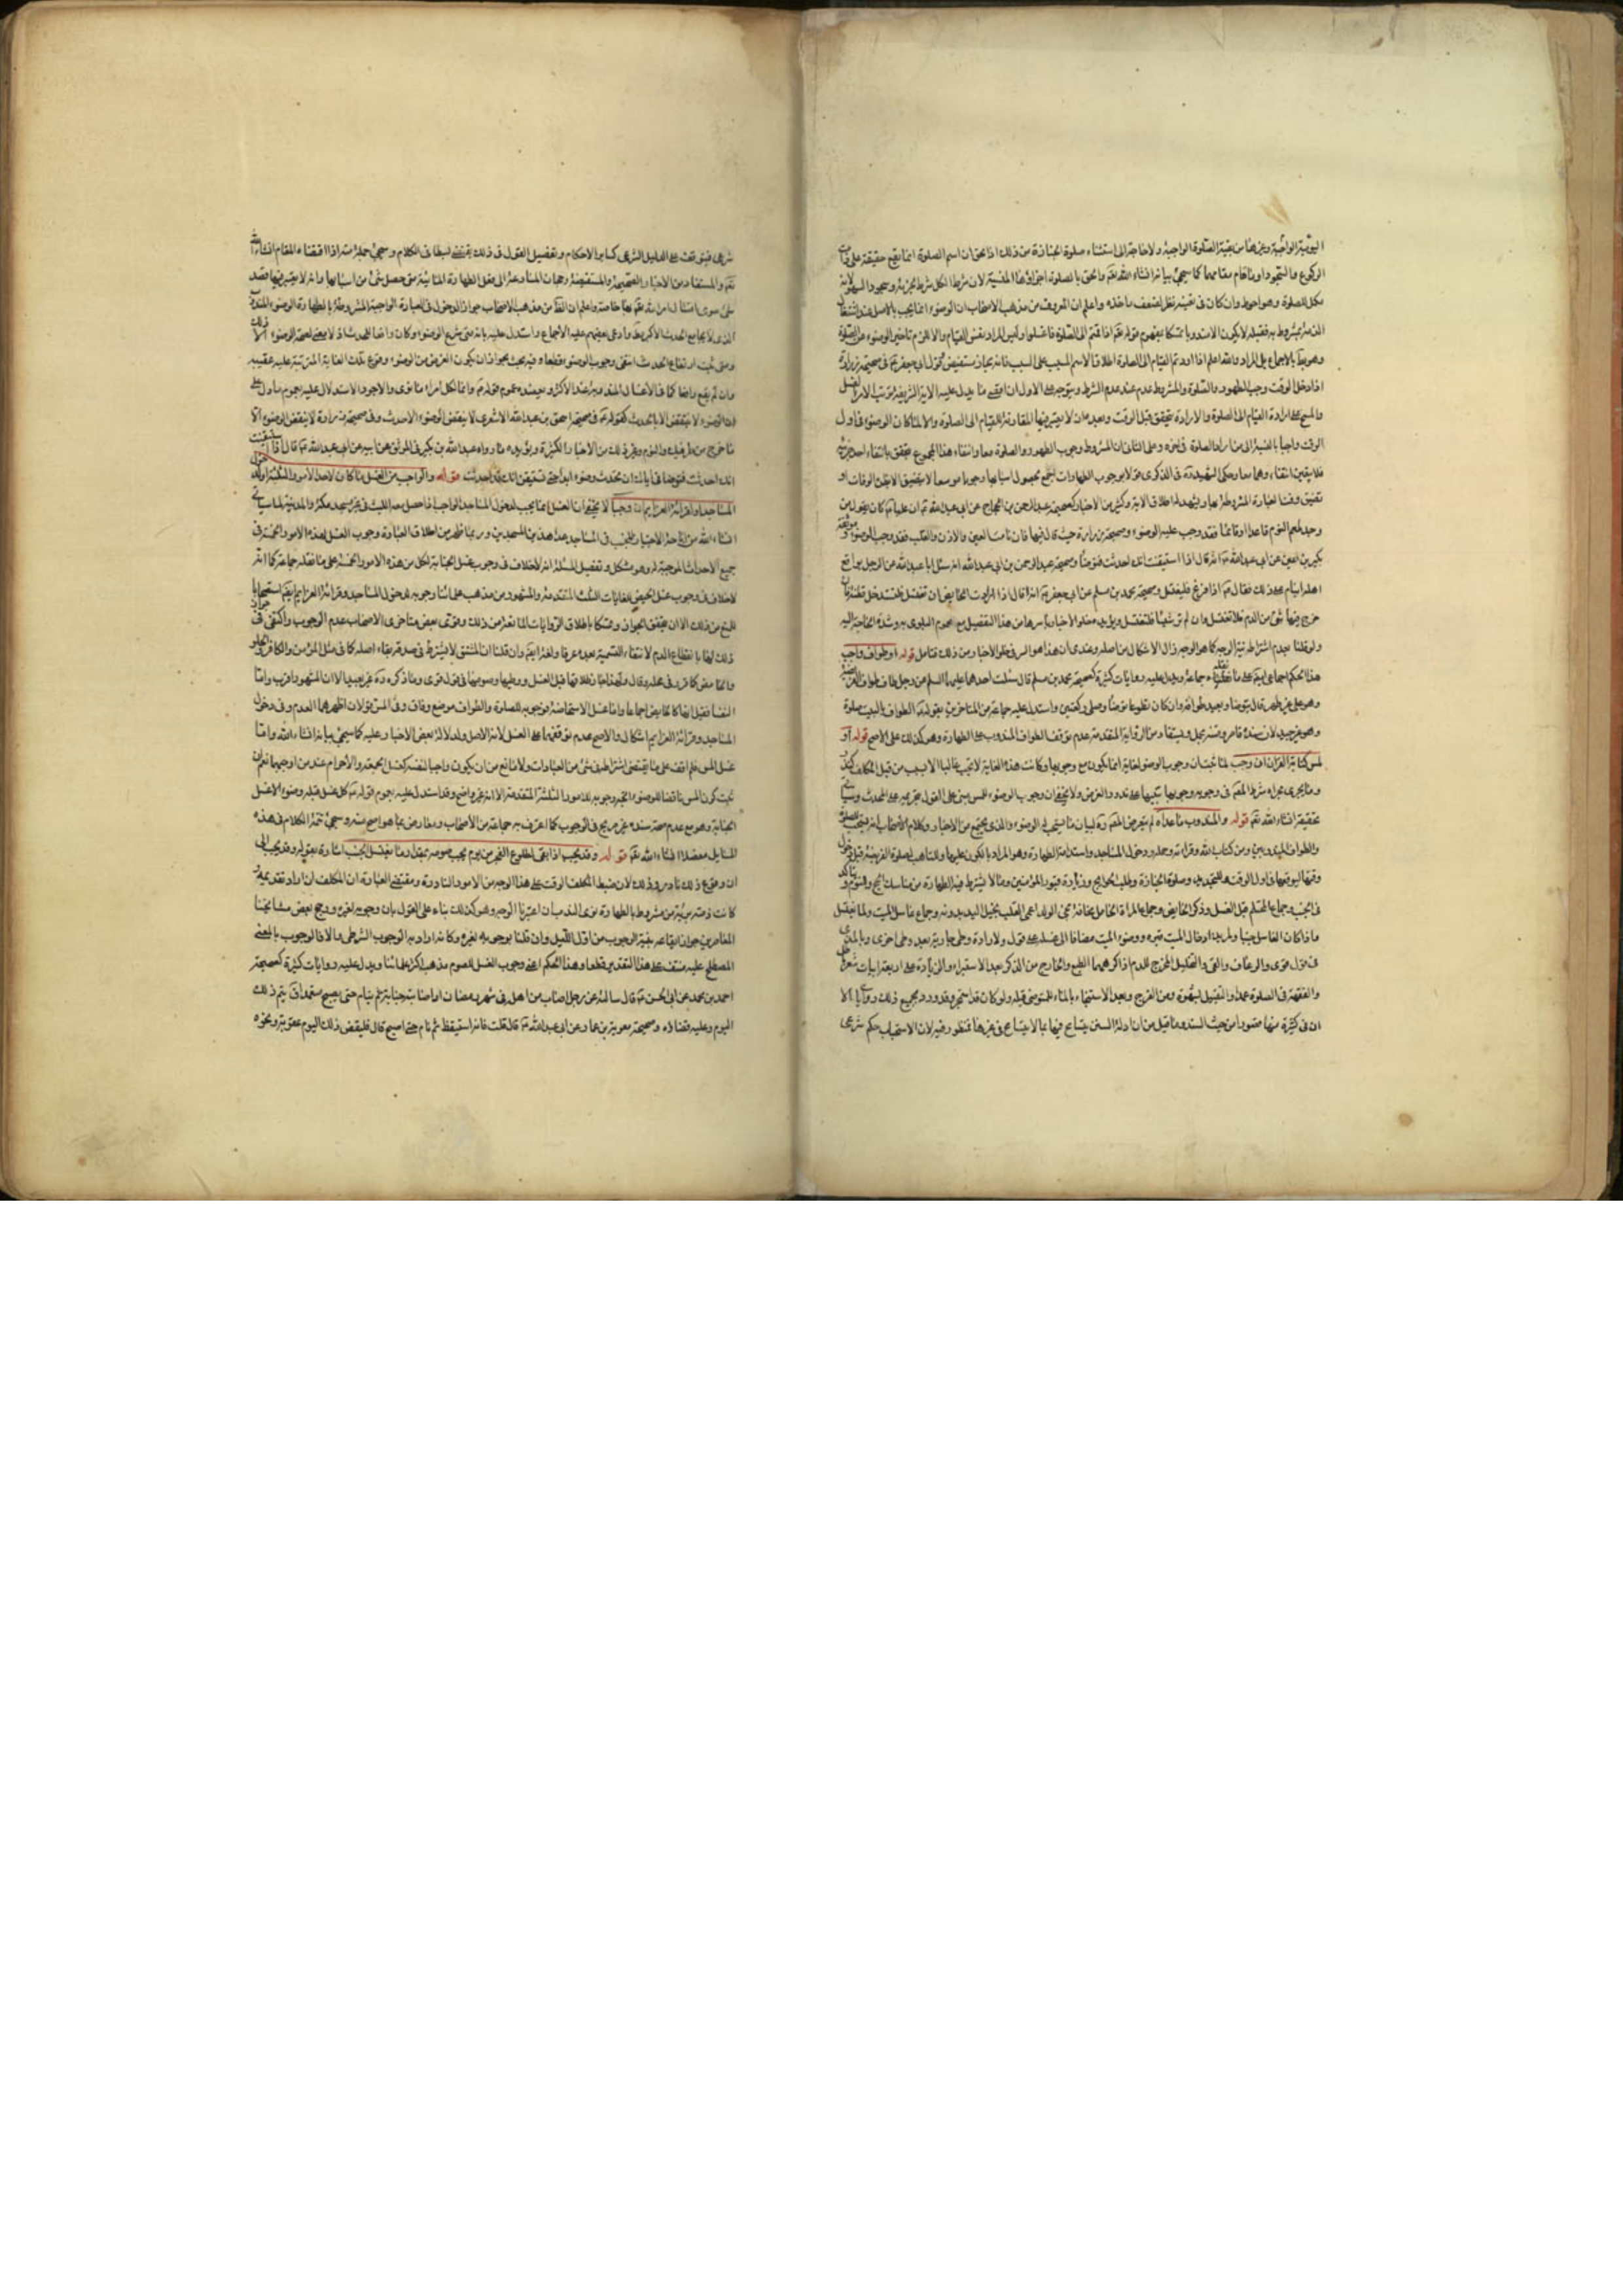 اليومية الواجبة وغيرها من بقية الصلوة الواجبة ولا حاجة الى استثناء صلوة الجنازة من ذلك اذ الحق ان اسم الصلوة انما يقع حقيقة على ذات
الركوع والسجود او ما قام مقامهما كما سيجئ بيانه انشاء الله تعالى والحق بالصلوة اجزاؤها المنسية لان شرط الكل شرط لجزئه وسجود السهو لانه
مكمل للصلوة وهو احوط وان كان في تعينه نظر لضعف ماخذه واعلم ان المعروف من مذهب الاصحاب ان الوضوء انما يجب بالاصل عند اشتغال
الذمة بمشروط به فقبله لا يكون الا مندوبا تمسكا بمفهوم قوله تعالى اذا قمتم الى الصلوة فاغسلوا وليس المراد نفس القيام والا لزم تاخير الوضوء عن الصلوة
وهو بط بالاجماع بل المراد والله اعلم اذا اردتم القيام الى الصلوة اطلاقا لاسم المسبب على السبب فانه مجاز مستفيض كقول ابي جعفر في صحيحة زرارة
اذا دخل الوقت وجب الطهور والصلوة والمشروط عدم عند عدم الشرط ويتوجه على الاول ان اقصى ما يدل عليه الاية الشريفة ترتب الامر بالغسل
والمسح على ارادة القيام الى الصلوة والارادة تتحقق قبل الوقت وبعده اذ لا يعتبر فيها المقارنة للقيام الى الصلوة والا لما كان الوضوء في اول
الوقت واجبا بالنسبة الى من اراد الصلوة في اخره وعلى الثاني ان المشروط وجوب الطهور والصلوة معا وانتفاء هذا المجموع يتحقق بانتفاء احد جزئيه
فلا يتعين انتفاء وهما معا وحكى الشهيد ره في الذكرى قولا بوجوب الطهارات اجمع بحصول اسبابها وجوبا موسعا لا يتضيق الا بظن الوفات او
تضيق وقت العبادة المشروطة بها ويشهد له اطلاق الاية وكثير من الاخبار كصحيحة عبد الرحمن بن الحجاج عن ابي عبد الله ان عليا كان يقول من
وجد طعم النوم قاعدا او قائما فقد وجب عليه الوضوء وصحيحة زرارة حيث قال فيها فان نامت العين والاذن والقلب فقد وجب الوضوء وموثقة
بكير بن اعين عن ابي عبد الله انه قال اذا استيقنت انك احدثت فتوضأ وصحيحة عبد الرحمن بن ابي عبد الله انه سئل ابا عبد الله عن الرجل يواقع
اهله اينام على ذلك فقال اذا فرغ فليغتسل وصحيحة محمد بن مسلم عن ابي جعفر انه قال اذا ارادت الحائض ان تغتسل فلتستدخل قطنة فان
خرج فيها شئ من الدم فلا تغتسل وان لم تر شيئا فلتغتسل ويؤيده خلو الاخبار باسرها من هذا التفصيل مع عموم البلوى به وشدة الحاجة اليه
ولو قلنا بعدم اشتراط نية الوجه كما هو الوجه زال الاشكال من اصله وعندي ان هذا هو السر في خلو الاخبار من ذلك فتامل قوله او طواف واجب
هذا الحكم اجماعي على ما نقله جماعة ويدل عليه روايات كثيرة كصحيحة محمد بن مسلم قال سئلت احدهما عليهما السلم عن رجل طاف طواف الفريضة
وهو على غير طهر قال يتوضأ ويعيد طوافه وان كان تطوعا توضأ وصلى ركعتين واستدل عليه جماعة من المتاخرين بقوله الطواف بالبيت صلوة
وهو غير جيد لان سنده قاصر ومتنه مجمل ويستفاد من الرواية المتقدمة عدم توقف الطواف المندوب على الطهارة وهو كذلك على الاصح قوله او
لمس كتابة القران ان وجب لما ثبت ان وجوب الوضوء لغاية انما يكون مع وجوبها وكانت هذه الغاية لا تجب غالبا الا بسبب من قبل المكلف كنذر
وما يجري مجراه شرط المص في وجوبه وجوبها تنبيها على ندور الفرض ولا يخفى ان وجوب الوضوء للمس مبني على القول بتحريمه على المحدث وسياتي
تحقيقه انشاء الله تعالى قوله والمندوب ما عداه لم يتعرض المص ره لبيان ما يستحب له الوضوء والذي يجتمع من الاخبار وكلام الاصحاب انه يستحب للصلوة
والطواف المندوبين ومس كتاب الله وقرائته وحمله ودخول المساجد واستدامة الطهارة وهو المراد بالكون عليها وللتاهب لصلوة الفريضة قبل دخول
وقتها ليوقعها في اول الوقت وللتجديد وصلوة الجنازة وطلب الحوايج وزيارة قبور المؤمنين وما لا يشترط فيه الطهارة من مناسك الحج وللنوم ويتاكد
في الجنب وجماع المحتلم قبل الغسل وذكر الحائض وجماع المراة الحامل مخافة مجئ الولد اعمى القلب بخيل اليد بدونه وجماع غاسل الميت ولما يغتسل
ماذا كان الغاسل جنبا ولمريد ادخال الميت قبره ووضوء الميت مضافا الى غسله على قول ولارادة وطى جارية بعد وطى اخرى وبالمذي
في قول قوى والرعاف والقئ والتخليل المخرج للدم اذا كرههما الطبع والخارج من الذكر بعد الاستبراء والزيادة على اربعة ابيات شعر باطل
والقهقهة في الصلوة عمدا والتقبيل بشهوة ومس الفرج وبعد الاستنجاء بالماء للمتوضى قبله ولو كان قد استجمر وقد ورد بجميع ذلك روايات الا
ان في كثيرة منها قصورا من حيث السند وما قيل من ان ادلة السنن يتسامح فيها بما لا يتسامح في غيرها فمنظور فيه لان الاستحباب حكم شرعي
شرعي فيتوقف على الدليل الشرعي كساير الاحكام وتفصيل القول في ذلك يقتضي بسطا في الكلام وسيجئ جملة منه اذا اقتضاه المقام انشاء الله
تعالى والمستفاد من الاخبار الصحيحة والمستفيضة رجحان المسارعة الى فعل الطهارة المائية متى حصل شئ من اسبابها وانه لا يعتبر فيها قصد
شئ سوى امتثال امر الله تعالى بها خاصة واعلم ان الظ من مذهب الاصحاب جواز الدخول في العبادة الواجبة المشروطة بالطهارة بالوضوء المندوب
الذي لا يجامع الحدث الاكبر مط وادعى بعضهم عليه الاجماع واستدل عليه بانه متى شرع الوضوء كان رافعا للحدث اذ لا معنى لصحة الوضوء الا ذلك
ومتى ثبت ارتفاع الحدث انتفى وجوب الوضوء قطعا وفيه بحث لجواز ان يكون الغرض من الوضوء وقوع تلك الغاية المترتبة عليه عقيبه
وان لم يقع رافعا كما في الاغسال المندوبة عند الاكثر ويعضده عموم قوله وانما لكل امرء ما نوى والاجود الاستدلال عليه بعموم ما دل على
ان الوضوء لا ينتقض الا بالحدث كقوله في صحيحة اسحق بن عبد الله الاشعري لا ينقض الوضوء الا حدث وفي صحيحة زرارة لا ينقض الوضوء الا
ما خرج من طرفيك والنوم وغير ذلك من الاخبار الكثيرة ويؤيده ما رواه عبد الله بن بكير في الموثق عن ابيه عن ابي عبد الله قال اذا استيقنت
انك احدثت فتوضأ واياك ان تحدث وضوء ابدا حتى تستيقن انك قد احدثت قوله والواجب من الغسل ما كان لاحد الامور الثلثة او لدخول
المساجد او قرائة العزايم ان وجبا لا يخفى ان الغسل انما يجب لدخول المساجد الواجب اذا حصل معه اللبث في غير مسجد مكة والمدينة لما سياتي
انشاء الله من اباحة الاجتياز للجنب في المساجد عدا هذين المسجدين وربما ظهر من اطلاق العبارة وجوب الغسل لهذه الامور الخمسة في
جميع الاحداث الموجبة له وهو مشكل وتفصيل المسئلة انه لا خلاف في وجوب غسل الجنابة لكل من هذه الامور الخمسة على ما نقله جماعة كما انه
لا خلاف في وجوب غسل الحيض للغايات الثلث المتقدمة والمشهور من مذهب علمائنا وجوبه لدخول المساجد وقرائة العزايم استصحابا
للمنع من ذلك الا ان يتحقق الجواز وتمسكا باطلاق الروايات المانعة من ذلك وقوى بعض متاخري الاصحاب عدم الوجوب واكتفى في جواز
ذلك لها بانقطاع الدم لانتفاء التسمية بعده عرفا ولغة وان قلنا ان المشتق لا يشترط في صدقه بقاء اصله كما في مثل المؤمن والكافر والحلو
والحامض كما قرر في محله وقال ولهذا جاز طلاقها قبل الغسل ووطيها وصومها في قول قوى وما ذكره ره غير بعيد الا ان المشهور اقرب واما
النفاس فقيل انه كالحائض اجماعا واما غسل الاستحاضة فوجوبه للصلوة والطواف موضع وفاق وفي المس قولان اظهرهما العدم وفي دخول
المساجد وقرائة العزايم اشكال والاصح عدم توقفهما على الغسل لانه الاصل ولدلالة بعض الاخبار عليه كما سيجئ بيانه انشاء الله واما
غسل المس فلم اقف على ما يقتضي اشتراطه في شئ من العبادات ولا مانع من ان يكون واجبا لنفسه كغسل الجمعة والاحرام عند من اوجبهما نعم ان
ثبت كون المس ناقضا للوضوء اتجه وجوبه للامور الثلثة المتقدمة الا انه غير واضح وقد استدل عليه بعموم قوله كل غسل قبله وضوء الا غسل
الجنابة وهو مع عدم صحة سنده غير صريح في الوجوب كما اعترف به جماعة من الاصحاب ومعارض بما هو اصح منه وسيجئ تتمة الكلام في هذه
المسايل مفصلا انشاء الله تعالى قوله وقد يجب اذا بقى لطلوع الفجر من يوم يجب صومه بقدر ما يغتسل الجنب اشارة بقوله وقد يجب الى
ان وقوع ذلك نادر وذلك لان ضبط المكلف الوقت على هذا الوجه من الامور النادرة ومقتضى العبارة ان المكلف ان اراد تقديمه
كانت ذمته بريئة من مشروط بالطهارة نوى الندب ان اعتبرنا الوجه وهو كذلك بناء على القول بان وجوبه لغيره ورجح بعض مشايخنا
المعاصرين جواز ايقاعه بنية الوجوب من اول الليل وان قلنا بوجوبه لغيره وكانه اراد به الوجوب الشرطي والا فالوجوب بالمعنى
المصطلح عليه منتف على هذا التقدير قطعا وهذا الحكم اعني وجوب الغسل للصوم مذهب اكثر علمائنا ويدل عليه روايات كثيرة كصحيحة
احمد بن محمد عن ابي الحسن قال سالته عن رجل اصاب من اهله في شهر رمضان او اصابته جنابة ثم ينام حتى يصبح متعمدا قال يتم ذلك
اليوم وعليه قضاؤه وصحيحة معوية بن عمار عن ابي عبد الله قال قلت فانه استيقظ ثم نام حتى اصبح قال فليقض ذلك اليوم عقوبة ونحوه